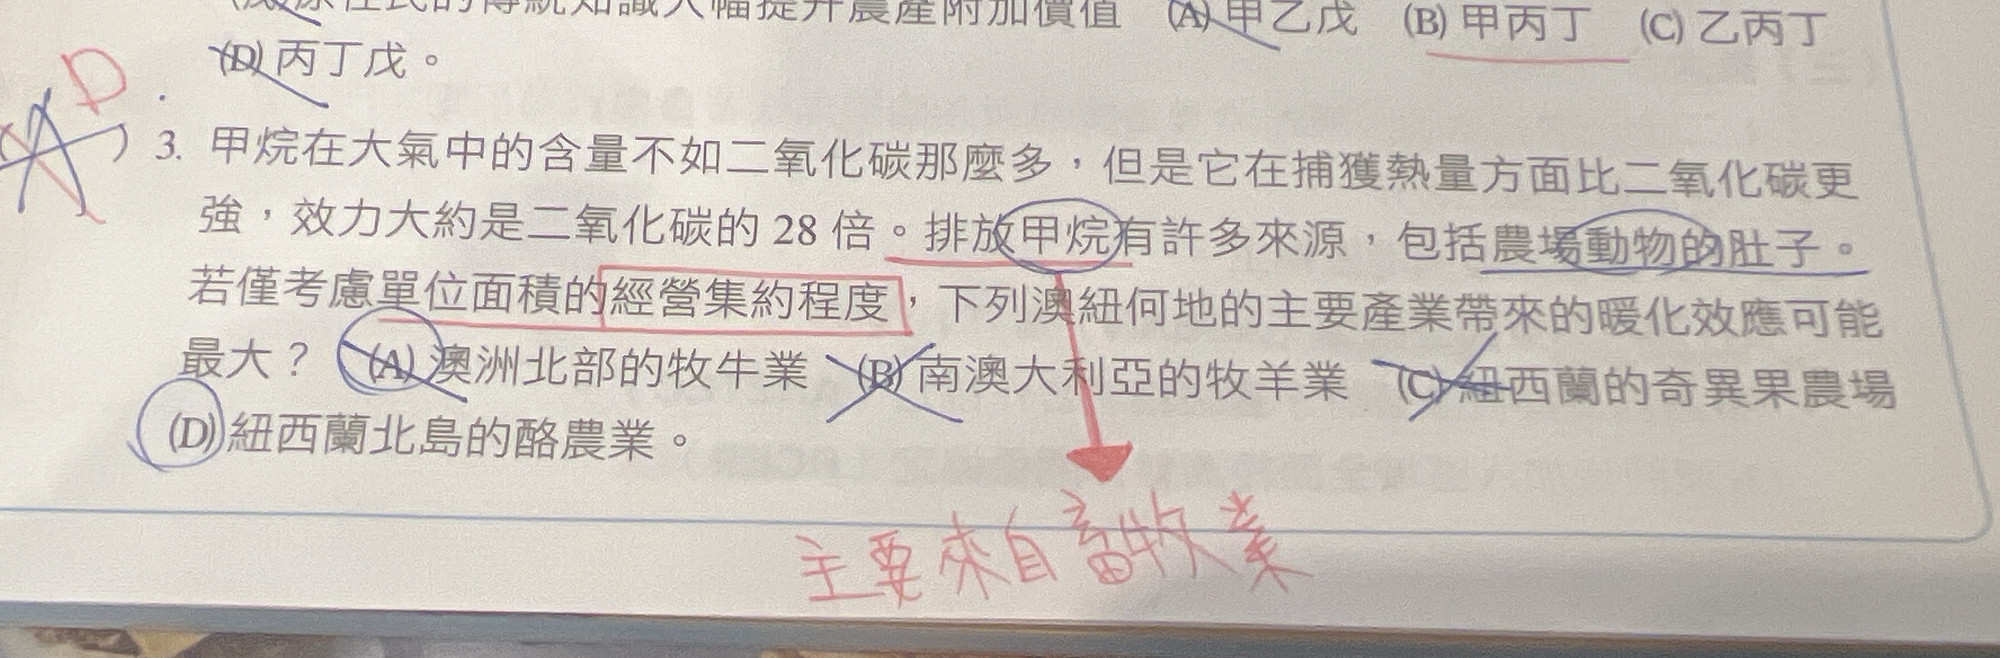 原住民的傳統知識大幅提升農產附加價值 (A) 甲乙戊 (B) 甲丙丁 (C) 乙丙丁
(D) 丙丁戊。
D
A
3. 甲烷在大氣中的含量不如二氧化碳那麼多，但是它在捕獲熱量方面比二氧化碳更
強，效力大約是二氧化碳的 28 倍。排放甲烷有許多來源，包括農場動物的肚子。
若僅考慮單位面積的經營集約程度，下列澳紐何地的主要產業帶來的暖化效應可能
最大？ (A) 澳洲北部的牧牛業 (B) 南澳大利亞的牧羊業 (C) 紐西蘭的奇異果農場
(D) 紐西蘭北島的酪農業。
主要來自畜牧業